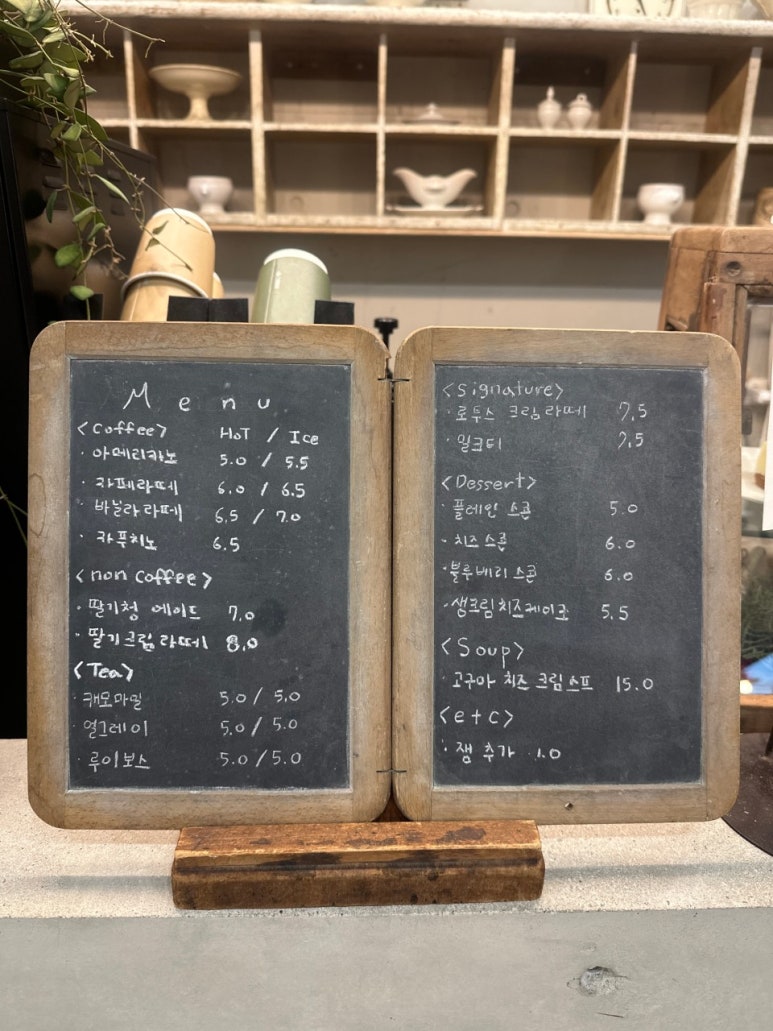 Menu
<Coffee> HoT / Ice
· 아메리카노 5.0 / 5.5
· 카페라떼 6.0 / 6.5
· 바닐라라떼 6.5 / 7.0
· 카푸치노 6.5
<non coffee>
· 딸기청 에이드 7.0
· 딸기크림라떼 8.0
<Tea>
· 캐모마일 5.0 / 5.0
· 얼그레이 5.0 / 5.0
· 루이보스 5.0 / 5.0
<signature>
· 로투스 크림라떼 7.5
· 밀크티 7.5
<Dessert>
· 플레인 스콘 5.0
· 치즈 스콘 6.0
· 블루베리 스콘 6.0
· 생크림치즈케이크 5.5
<Soup>
· 고구마 치즈 크림스프 15.0
<etc>
· 잼 추가 1.0